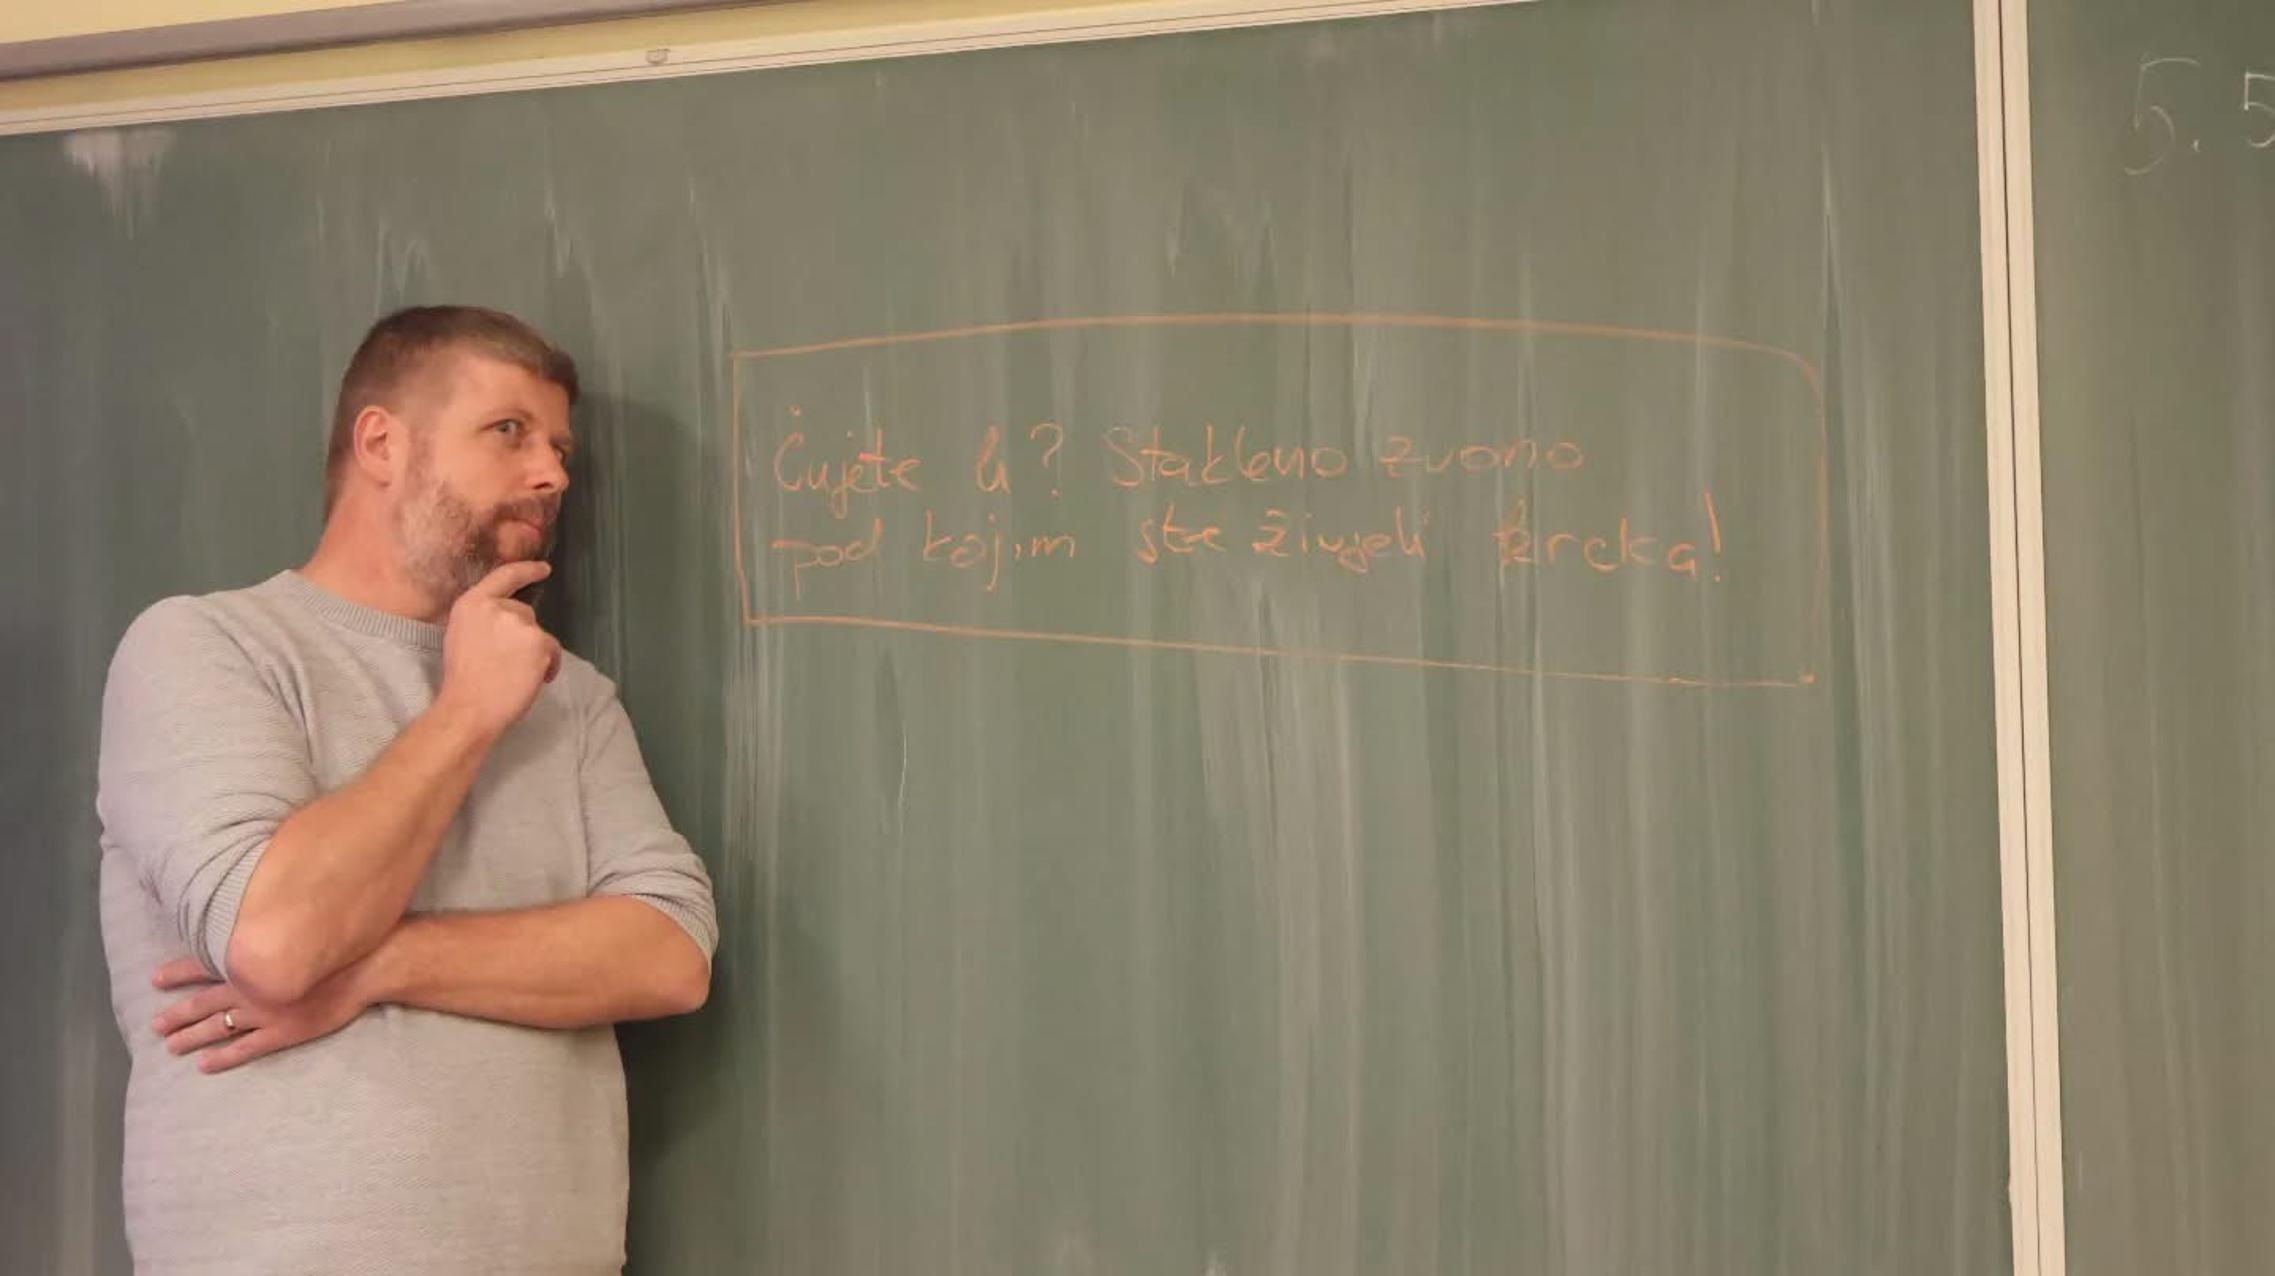 Čujete li? Stakleno zvono
pod kojim ste živjeli krcka!
5. 5